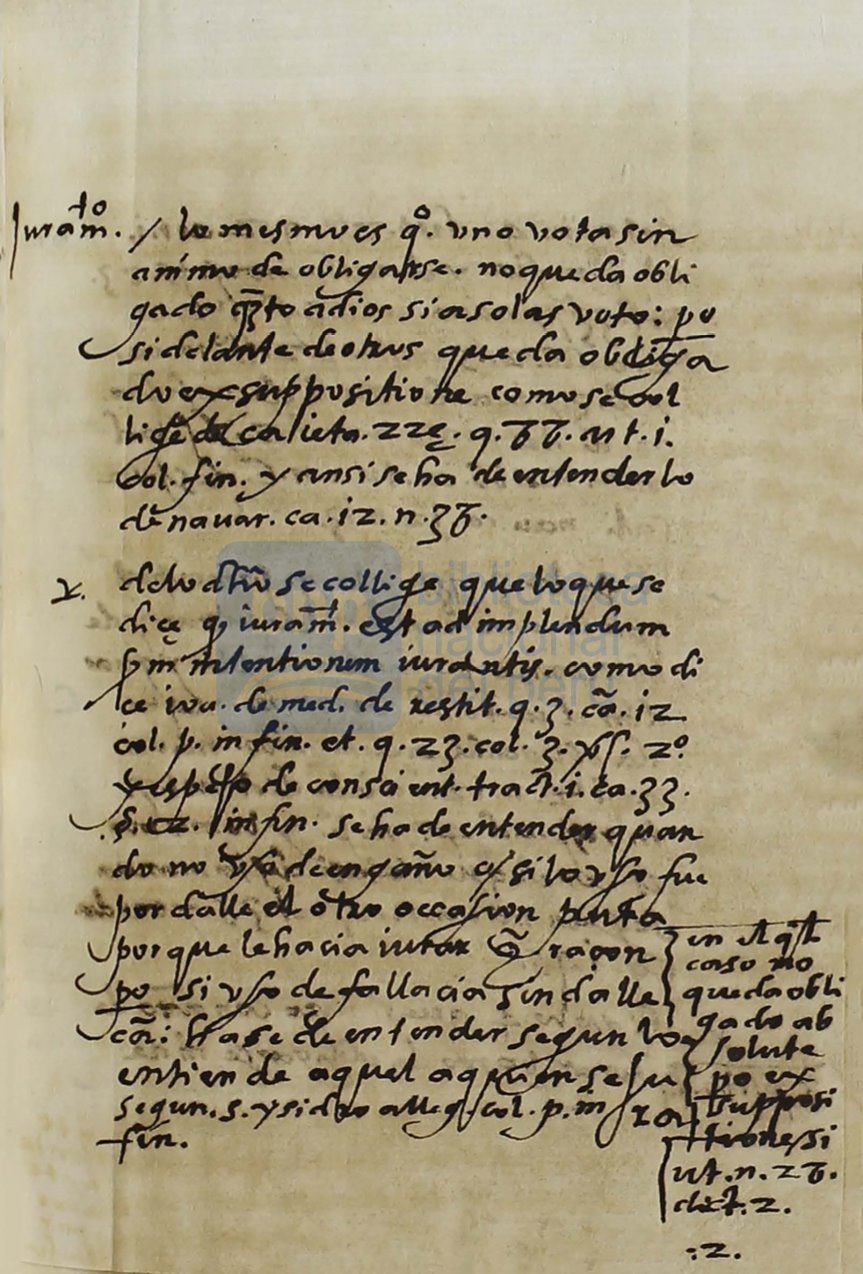 Juram.to / lo mesmo es q.o uno vota sin
animo de obligarse. no queda obli
gado q̃to a dios si a solas voto: po
si delante de otros queda obliga
do ex suppositione como se col
lige de Caieta. 22ę. q. 

col. fin. y ansi se ha de entender lo
de navar. ca. 12. n. 
de lo dho se collige que lo que se
dice q iuram. est ad implendum
intentionem iurantis. como di
ce ioa. de med. de restit. q. 3. cã. 12
col. p. in fin. et. q. 23. col. 3. 2º
de conscient. tract. i. ca. 33.
in fin. se ha de entender quan
do no usa de engaño si lo uso fue
por dalle el otro occasion
porque le hacia iurar raçon
po si uso de fallacia sin dalle
cã: hase de entender segun lo
entiende aquel a quien se iu
ra segun. s. y sidro alleg. col. p. in
fin.
en el ql
caso no
queda obli
gado ab
solute
po ex
supposi
tione si
ut. n. 
dict. 2.
.2.